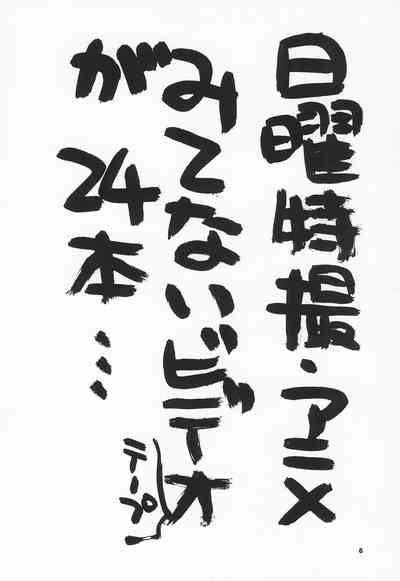 日曜特撮・アニメ
みてないビデオ
テープ
が 24本…
6